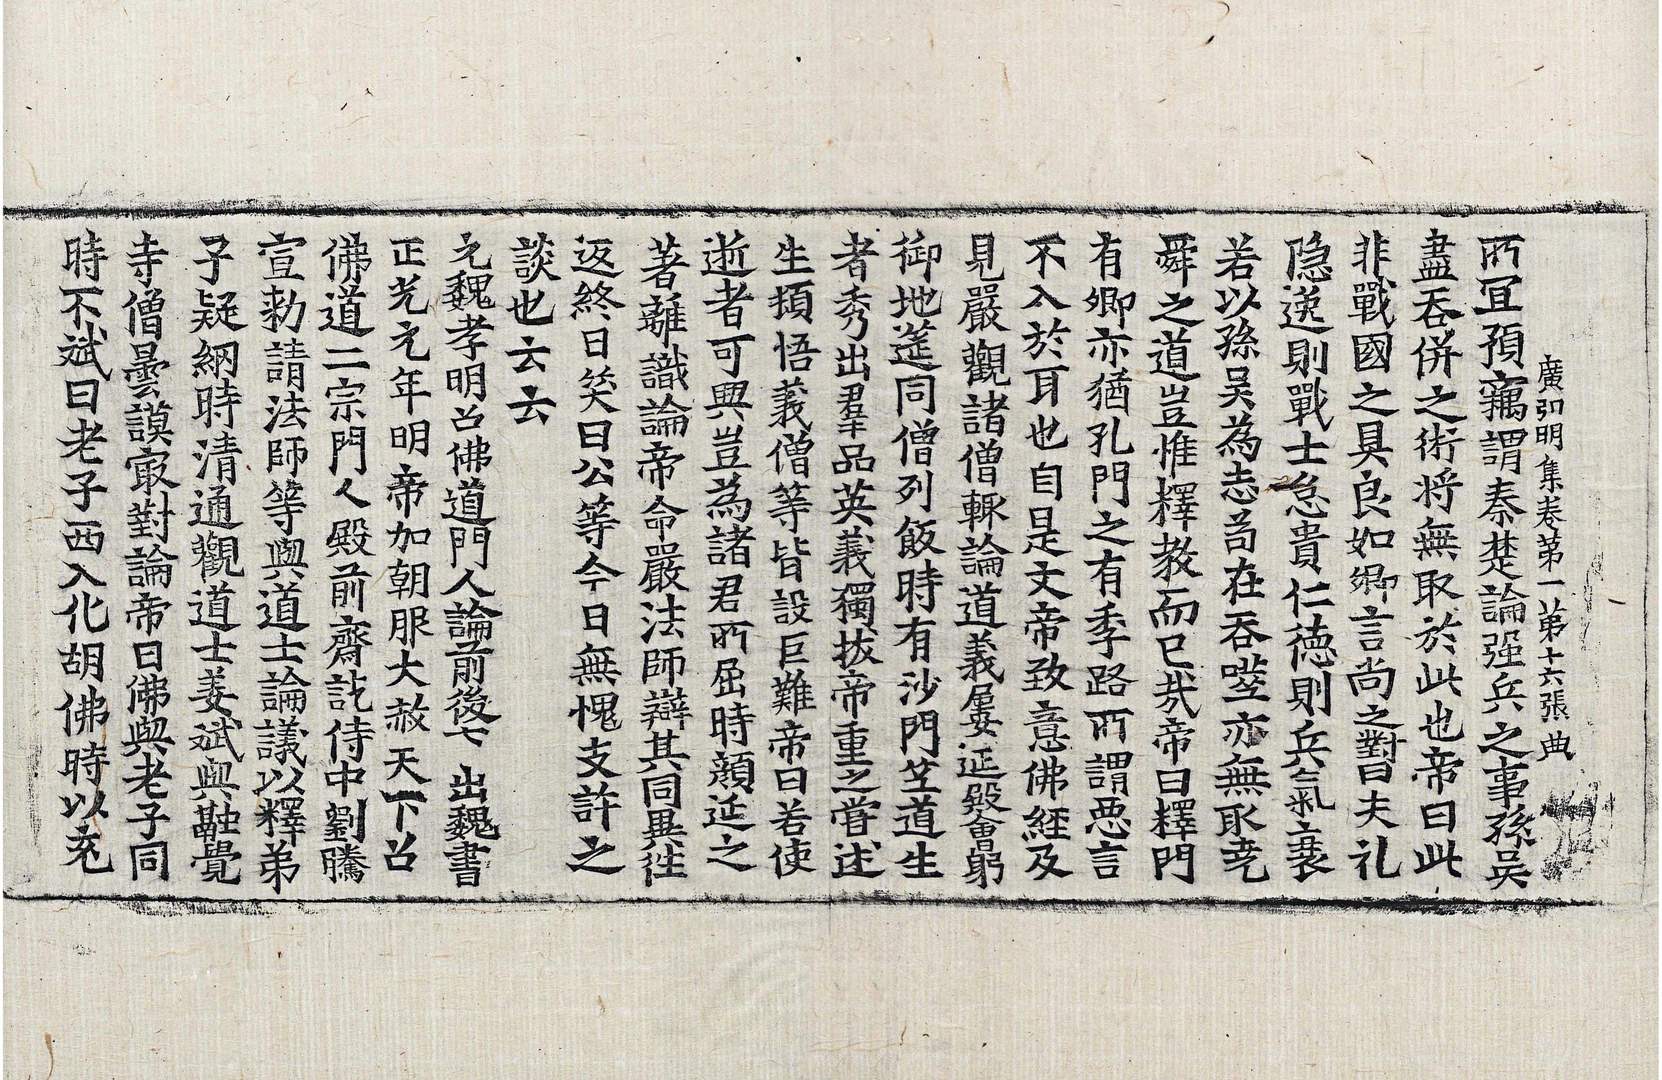 廣弘明集卷第一第十六張典
所冝預竊謂秦楚論强兵之事孫吴
盡吞併之術将無取於此也帝曰此
非戰國之具良如卿言尚之對曰夫礼
隐逸則戰士怠貴仁德則兵氣衰
若以孫吴為志苟在吞噬亦無取尭
舜之道豈惟釋教而已㢤帝曰釋門
有卿亦猶孔門之有季路所謂惡言
不入於耳也自是文帝致意佛經及
見嚴觀諸僧輙論道義屢延殿會躬
御地莚同僧列飯時有沙門竺道生
者秀出羣品英義獨拔帝重之甞述
生頓悟義僧等皆設巨難帝曰若使
逝者可興豈為諸君所屈時顔延之
著離識論帝命嚴法師辯其同異往
返終日笑曰公等今日無愧支許之
談也云云
元魏孝明召佛道門人論前後七 出魏書
正光元年明帝加朝服大赦天下召
佛道二宗門人殿前齋訖侍中劉騰
宣勑請法師等與道士論議以釋弟
子疑網時清通觀道士姜斌與融覺
寺僧曇謨㝡對論帝曰佛與老子同
時不斌曰老子西入化胡佛時以充